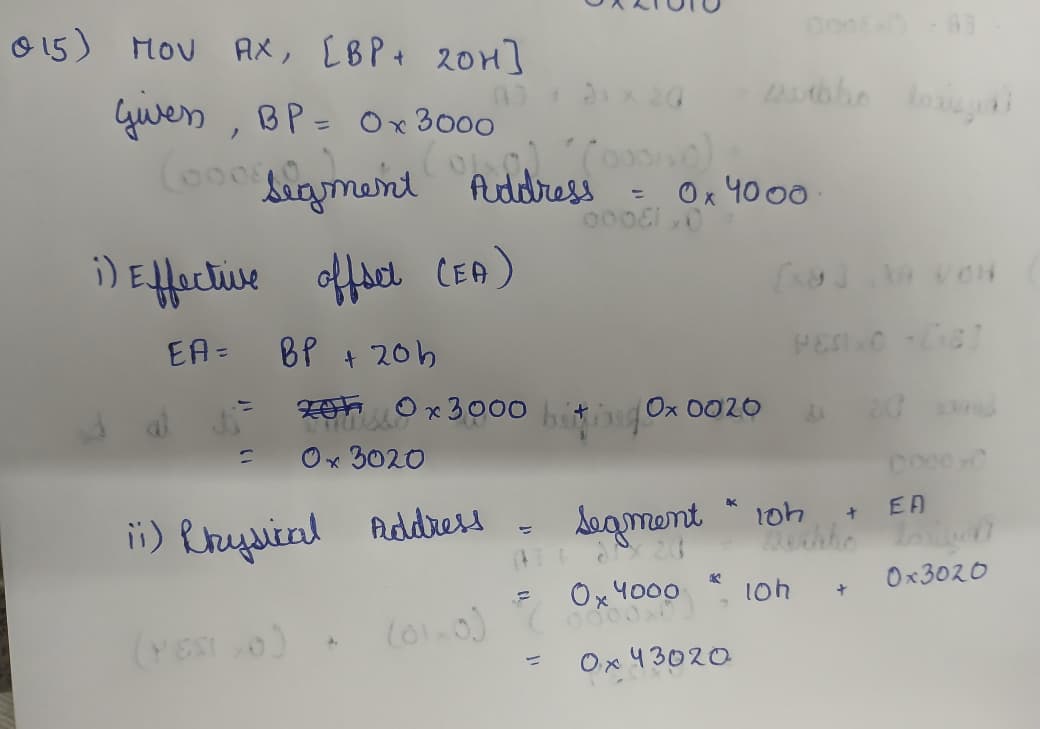 0x21010
Q15) MOV AX, [BP + 20H]
Given, BP = 0x3000
Segment Address = 0x4000
i) Effective offset (EA)
EA = BP + 20h
= 0x3000 + 0x0020
= 0x3020
ii) Physical Address = Segment * 10h + EA
= 0x4000 * 10h + 0x3020
= 0x43020